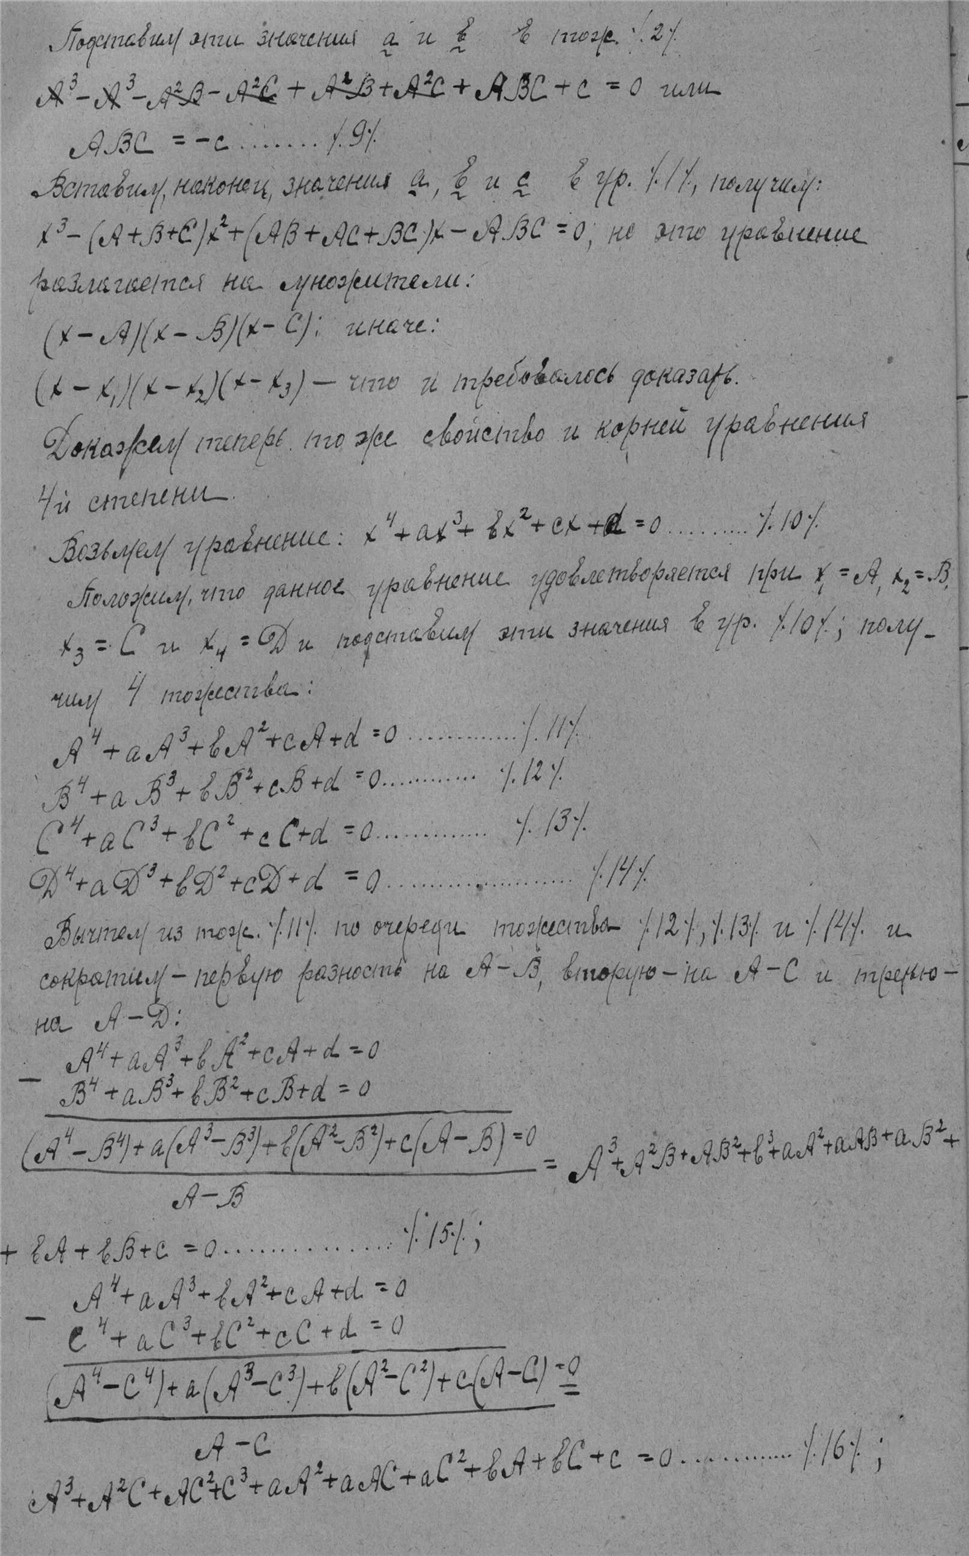 Подставим эти значения a и b в тож. /.2/.
A³ – A³ – A²B – A²C + A²B + A²C + ABC + c = 0 или
ABC = –c ........ /.9/.
Вставим, наконец, значения a, b и c в ур. /.1/., получим:
x³ – (A+B+C)x² + (AB+AC+BC)x – ABC = 0; но это уравнение
разлагается на множители:
(x – A)(x – B)(x – C); иначе:
(x – x₁)(x – x₂)(x – x₃) – что и требовалось доказать.
Докажем теперь то же свойство и корней уравнения
4й степени.
Возьмем уравнение: x⁴ + ax³ + bx² + cx + d = 0 ......... /.10/.
Положим, что данное уравнение удовлетворяется при x₁ = A, x₂ = B,
x₃ = C и x₄ = D и подставим эти значения в ур. /.10/.; полу-
чим 4 тожества:
A⁴ + aA³ + bA² + cA + d = 0 ............. /.11/.
B⁴ + aB³ + bB² + cB + d = 0 ............ /.12/.
C⁴ + aC³ + bC² + cC + d = 0 ............. /.13/.
D⁴ + aD³ + bD² + cD + d = 0 ...................... /.14/.
Вычтем из тож. /.11/. по очереди тожества /.12/., /.13/. и /.14/. и
сократим – первую разность на A–B, вторую – на A–C и третью –
на A–D:
A⁴ + aA³ + bA² + cA + d = 0
–
B⁴ + aB³ + bB² + cB + d = 0
(A⁴–B⁴) + a(A³–B³) + b(A²–B²) + c(A–B) = 0 = A³ + A²B + AB² + b³ + aA² + aAB + aB² +
A – B
+ bA + bB + c = 0 ................ /.15/.;
A⁴ + aA³ + bA² + cA + d = 0
–
C⁴ + aC³ + bC² + cC + d = 0
(A⁴–C⁴) + a(A³–C³) + b(A²–C²) + c(A–C) = 0 =
A – C
A³ + A²C + AC² + C³ + aA² + aAC + aC² + bA + bC + c = 0 ............ /.16/.;